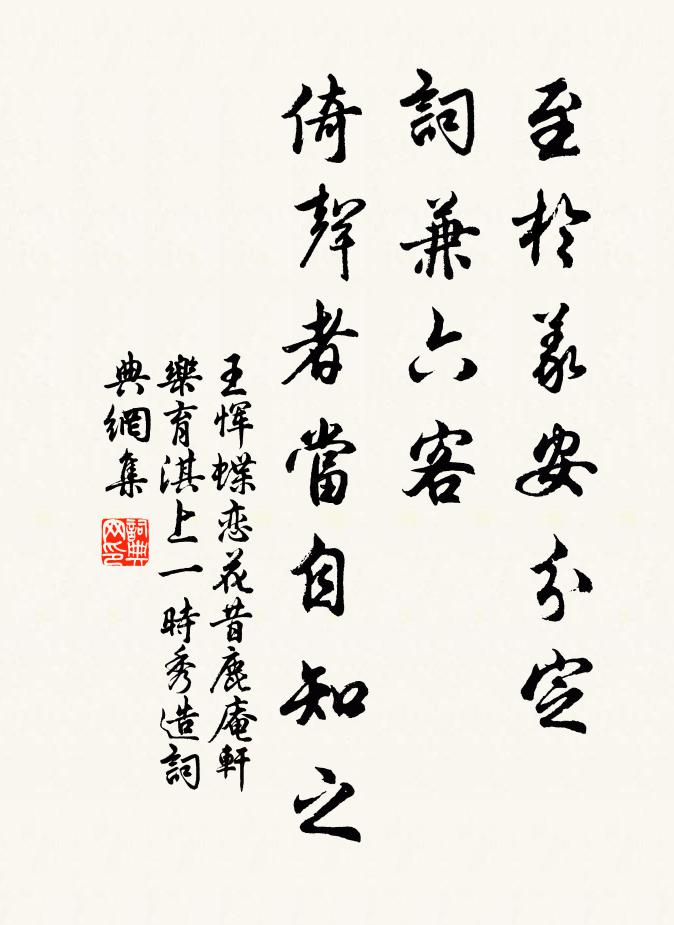 至於義安分定
詞兼六客
倚聲者當自知之
王惲蝶恋花昔鹿庵軒
樂育淇上一時秀造詞
典網集
詞典网印